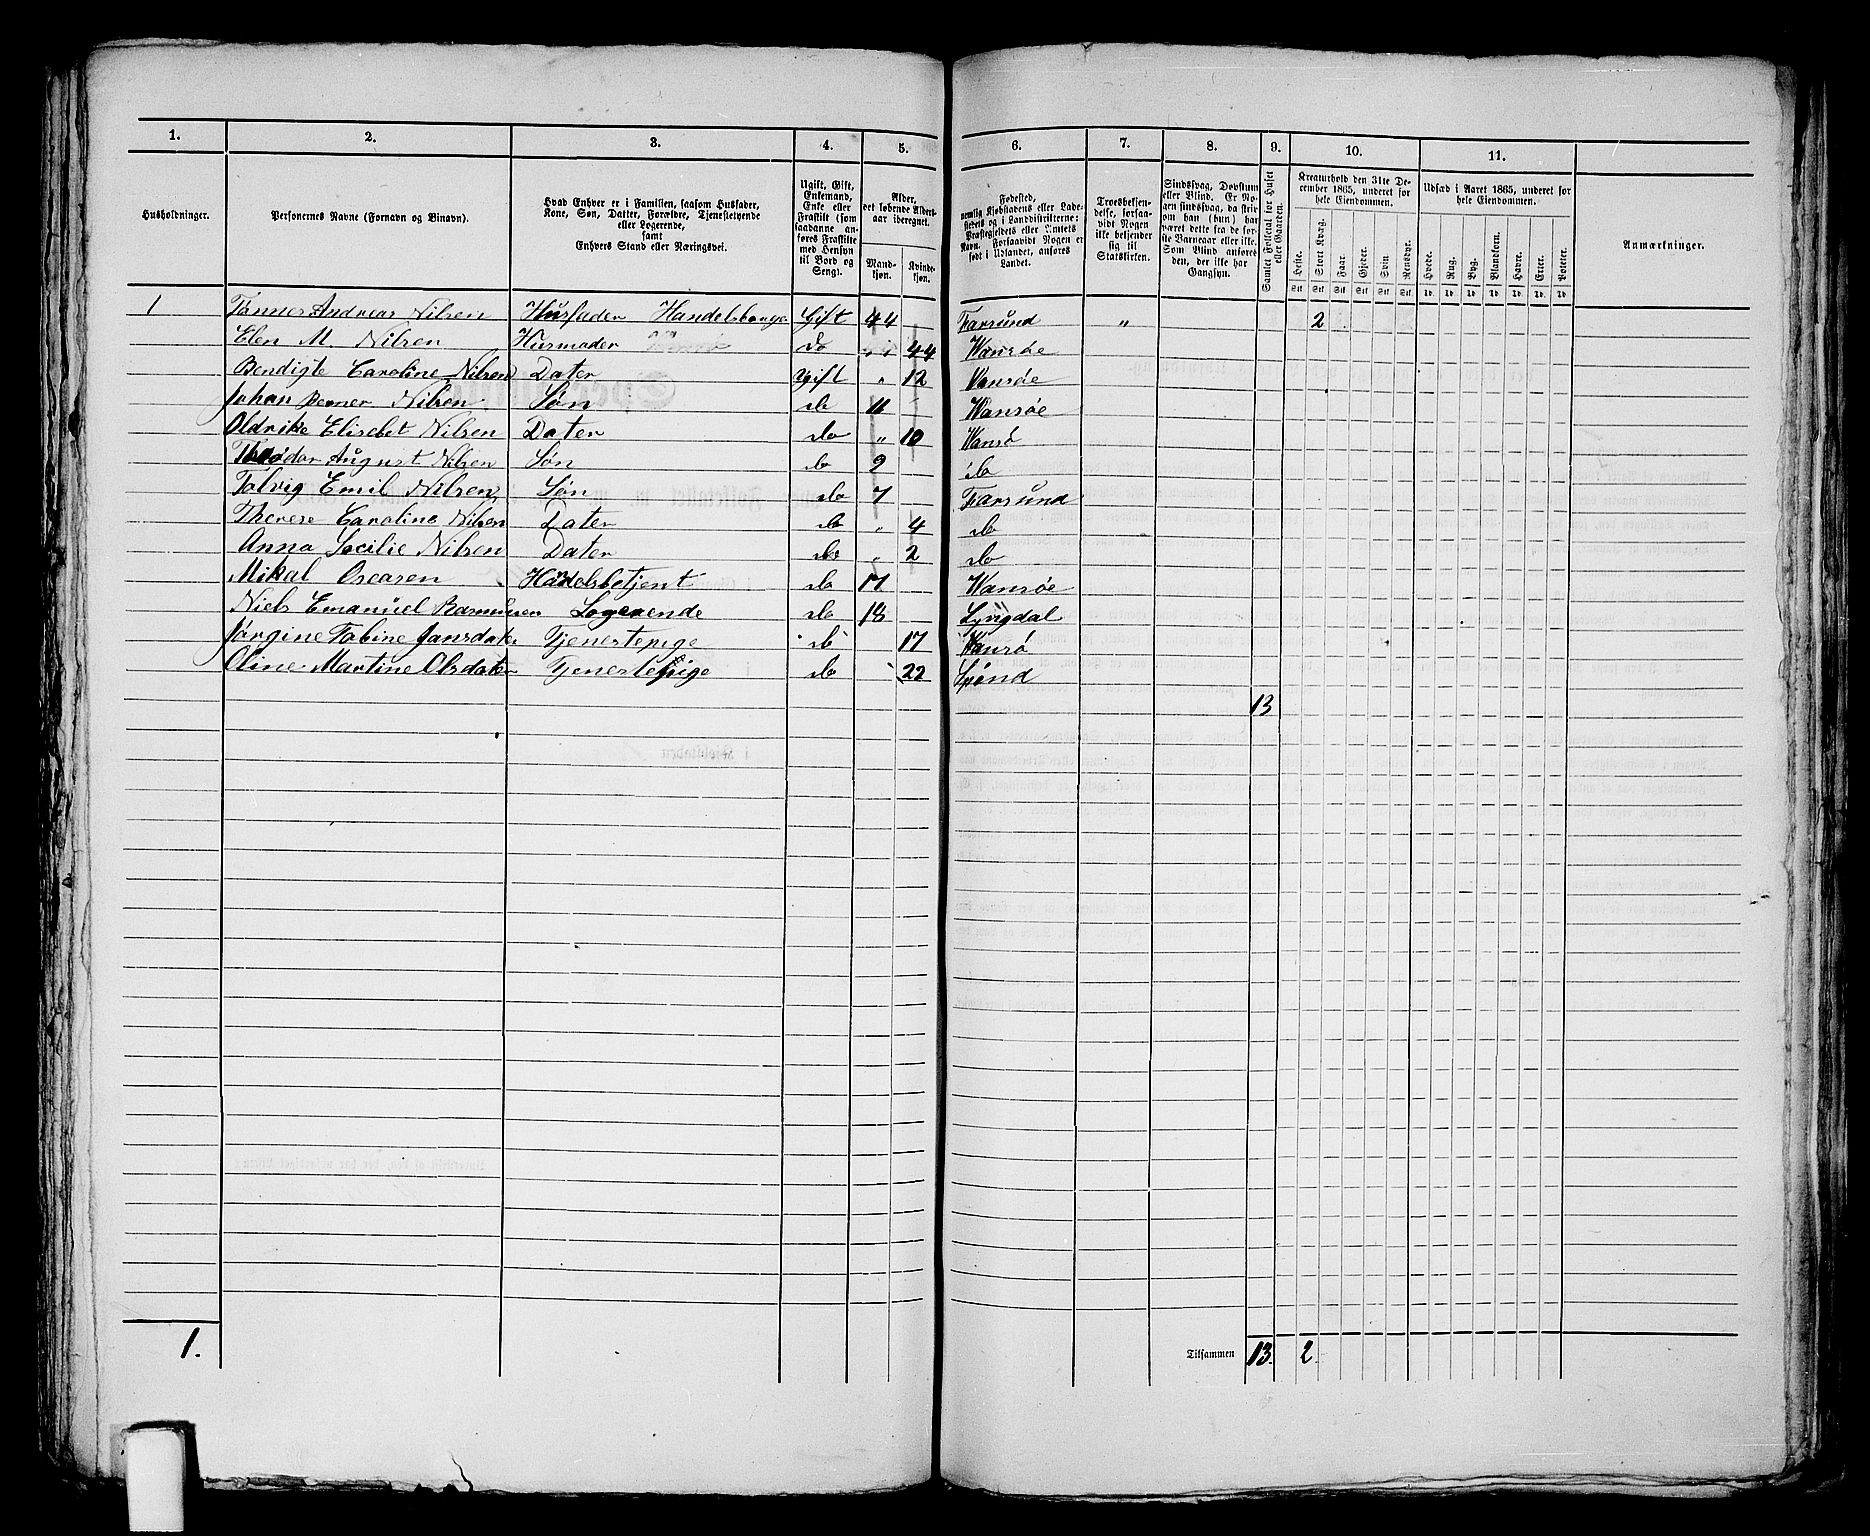 1. 2. 3. 4. 5. 6. 7. 8. 9. 10. 11.
Husholdninger.
Personernes Navne (Fornavn og Binavn).
Hvad Enhver er i Familien, saasom Husfader,
Kone, Søn, Datter, Forældre, Tjenestetyende
eller Logerende,
samt
Enhvers Stand eller Næringsvei.
Ugift, Gift,
Enkemand,
Enke eller
Fraskilt (som
saadanne an-
føres Fraskilte
med Hensyn
til Bord og
Seng).
Alder,
det løbende Alders-
aar iberegnet.
Mand-
kjøn.
Kvinde-
kjøn.
Fødested,
nemlig Kjøbstadens eller Lade-
stedets og i Landdistrikterne:
Præstegjeldets eller Amtets
Navn. Forsaavidt Nogen er
født i Udlandet, anføres
Landet.
Troesbekjen-
delse, forsaa-
vidt Nogen
ikke bekjender
sig til
Statskirken.
Sindssvag, Døvstum
eller Blind. Er No-
gen sindssvag, da skriv
om han (hun) har
været dette fra de for-
ste Barneaar eller ikke.
Som Blind anføres
den, der ikke har
Gangsyn.
Samlet Folketal for Huset
eller Gaarden.
Kreaturhold den 31te De-
cember 1865, underet for
hele Eiendommen.
Heste. Stort Kvæg. Faar. Gjeder. Svin. Rensdyr.
Stk Stk Stk Stk Stk Stk
Udsæd i Aaret 1865, underet for
hele Eiendommen.
Hvede. Rug. Byg. Blandkorn. Havre. Erter. Poteter.
Td. Td. Td. Td. Td. Td. Td.
Anmærkninger.
1 Tønnes Andreas Nilsen Husfader Gift 44 Farsund " 2
Elen M. Nilsen Husmoder do " 44 Wansøe
Bendigte Caroline Nilsen Dater Ugift " 12 Wansøe
Johan Berner Nilsen Søn do 11 Wansøe
Oldrike Elisebet Nilsen Dater do " 10 Wansø
Theodor August Nilsen Søn do 9 do
Tolvig Emil Nilsen Søn do 7 Farsund
Therese Caroline Nilsen Dater do " 4 do
Anna Secilie Nilsen Dater do " 2 do
Mikal Oscarsen Handelsbetjent do 17 Wansøe
Niels Emanuel Rasmusen Logerende do 18 Lyngdal
Jørgine Tobine Jansdater Tjenestepige do 17 Wansø
Oline Martine Olsdater Tjenestepige do 22 Spind
13
1. Tilsammen 13. 2.